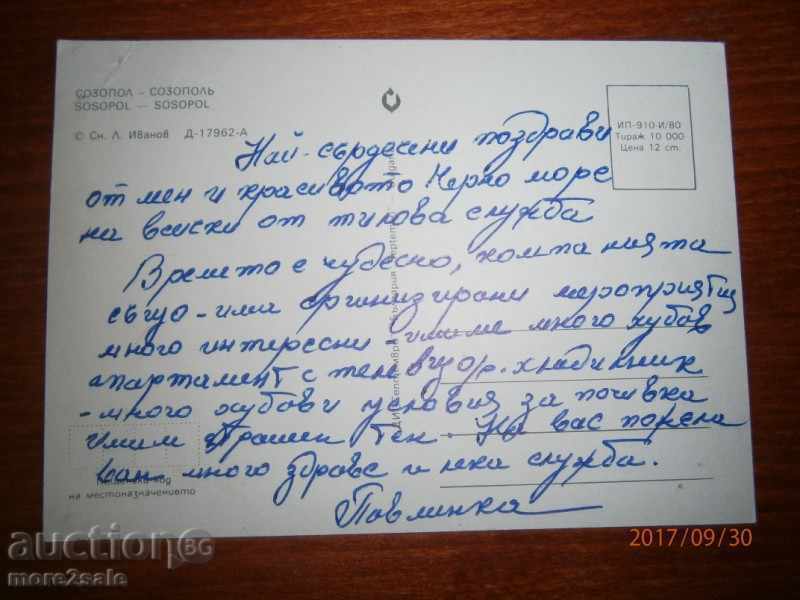 СОЗОПОЛ – СОЗОПОЛЬ
SOSOPOL — SOSOPOL
© Сн. Л. Иванов Д-17962-А
ИП-910-И/80
Тираж 10 000
Цена 12 ст.
Най-сърдечни поздрави
от мен и красивото Черно море
на всички от тилова служба
Времето е чудесно, компанията
също - има организирани мероприятия
много интересни имаме много хубав
апартамент с телевизор, хладилник
- много хубави условия за почивка
имам тен. На вас
много здраве и лека служба.
Павлинка
на местоназначението
2017/09/30
auction BG
more2sale